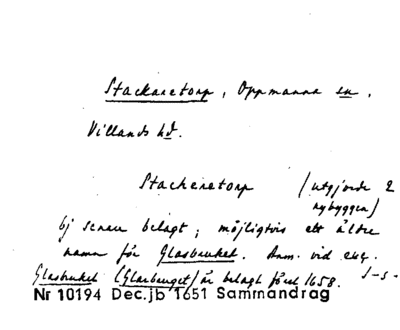 Stackaretorp, Oppmanna sn.
Villands hd.
Stackenetorp (utgjorde 2
nybyggen)
Ej senare belagt; möjligtvis ett äldre
namn för Glasbruket. Anm. vid exc.
Glasbruket (Glasbruget) är belagt först 1658. J-s-
Nr 10194 Dec.jb 1651 Sammandrag